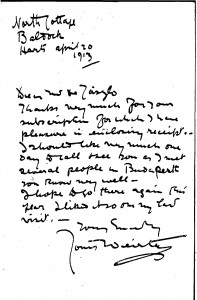 North Cottage
Baldock
Herts april 20
1913
Dear Mr de László
Thanks very much for your
subscription for which I have
pleasure in enclosing receipt. -
I should like very much one
day to call & see you as I met
several people in Budapest
you know very well -
I hope to go there again this
year I liked it so on my last
visit. -
Yours sincerely